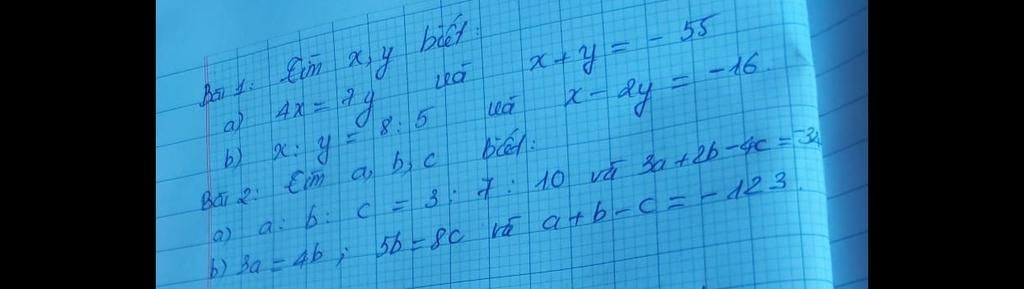 Bài 1: Tìm x, y biết:
a) 4x = 7y và x + y = - 55
b) x : y = 8 : 5 và x - 2y = -16.
Bài 2: Tìm a, b, c biết:
a) a : b : c = 3 : 7 : 10 và 3a + 2b - 4c = -34
b) 3a = 4b ; 5b = 8c và a + b - c = - 123.